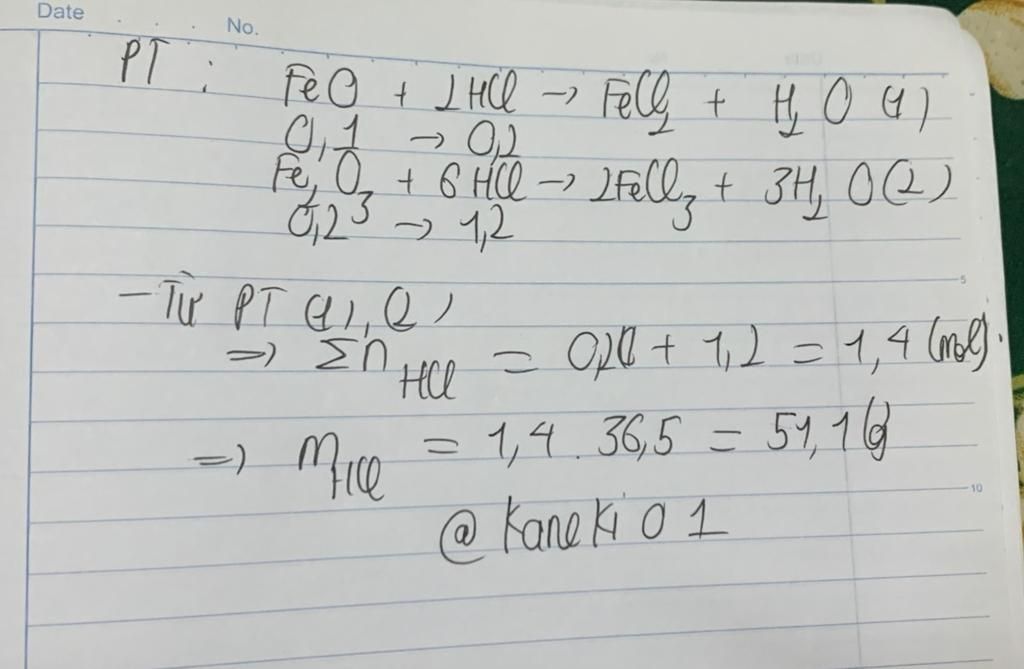 Date
No.
PT : FeO + 2HCl → FeCl₂ + H₂O (1)
0,1 → 0,2
Fe₂O₃ + 6HCl → 2FeCl₃ + 3H₂O (2)
0,2 → 1,2
5
- Từ PT (1), (2)
=> Σn HCl = 0,2 + 1,2 = 1,4 (mol).
=> m HCl = 1,4 . 36,5 = 51,1 (g)
10
@Kaneki01